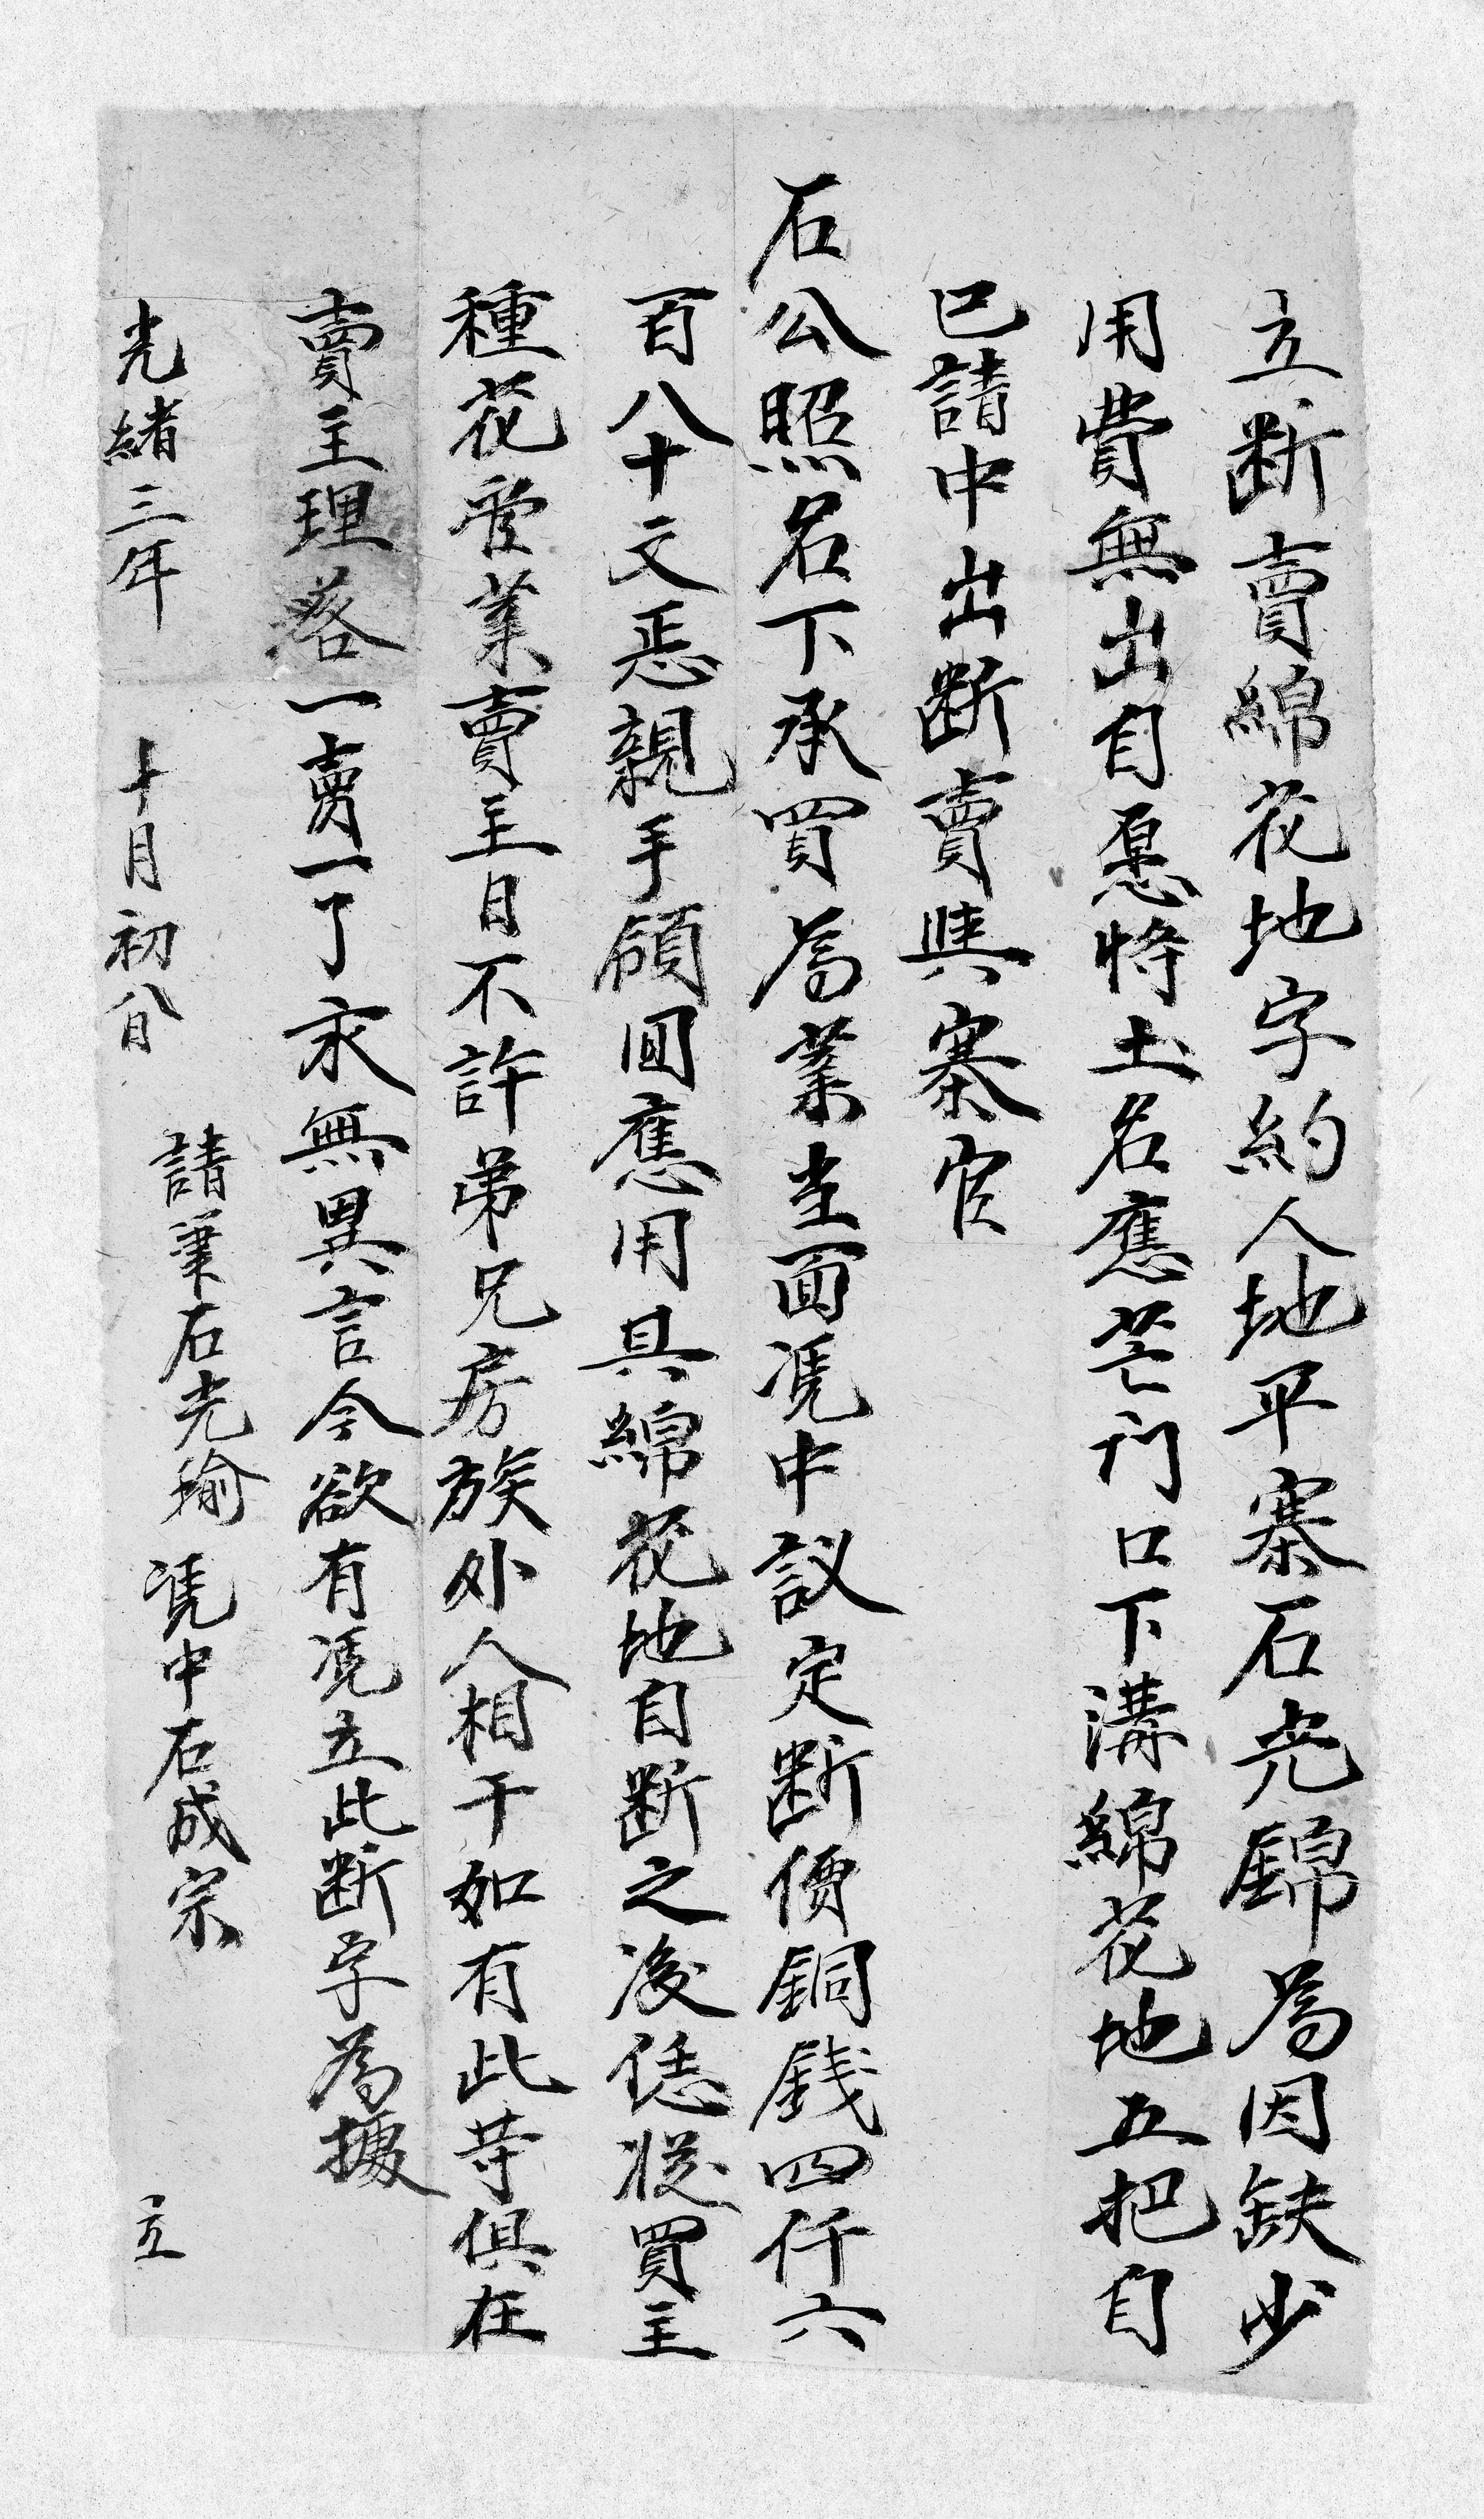 立断賣綿花地字約人地平寨石光錦為因缺少
用費無出自愿將土名應芒刁口下溝綿花地五把自
已請中出断賣與寨官
石公照名下承買為業當面凴中議定断價銅銭四仟六
百八十文恁親手領囬應用具綿花地自断之後恁從買主
種花管業賣主日不許弟兄房族外人相干如有此等俱在
賣主理落一賣一了永無異言今欲有凴立此断字為據
請筆石光瑜 凴中石成宗
光緒三年 十月初八日 立